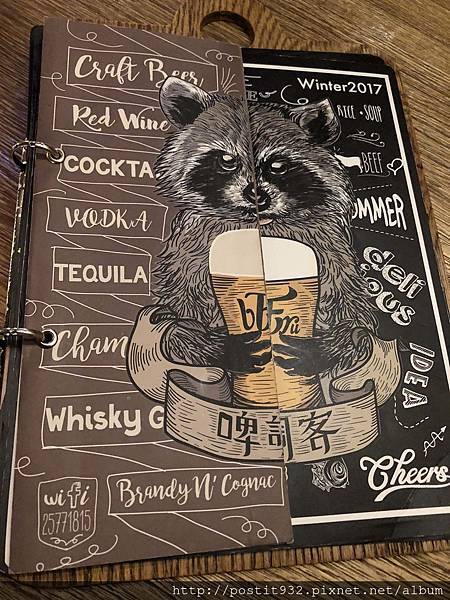 Craft Beer
Red Wine
COCKTA
VODKA
TEQUILA
Cham
Whisky G
Brandy N' Cognac
wifi
25771815
Winter2017
RICE · SOUP
BEEF
UMMER
deli
ious
IDEA
Cheers
啤訂客
http://postit932.pixnet.net/album